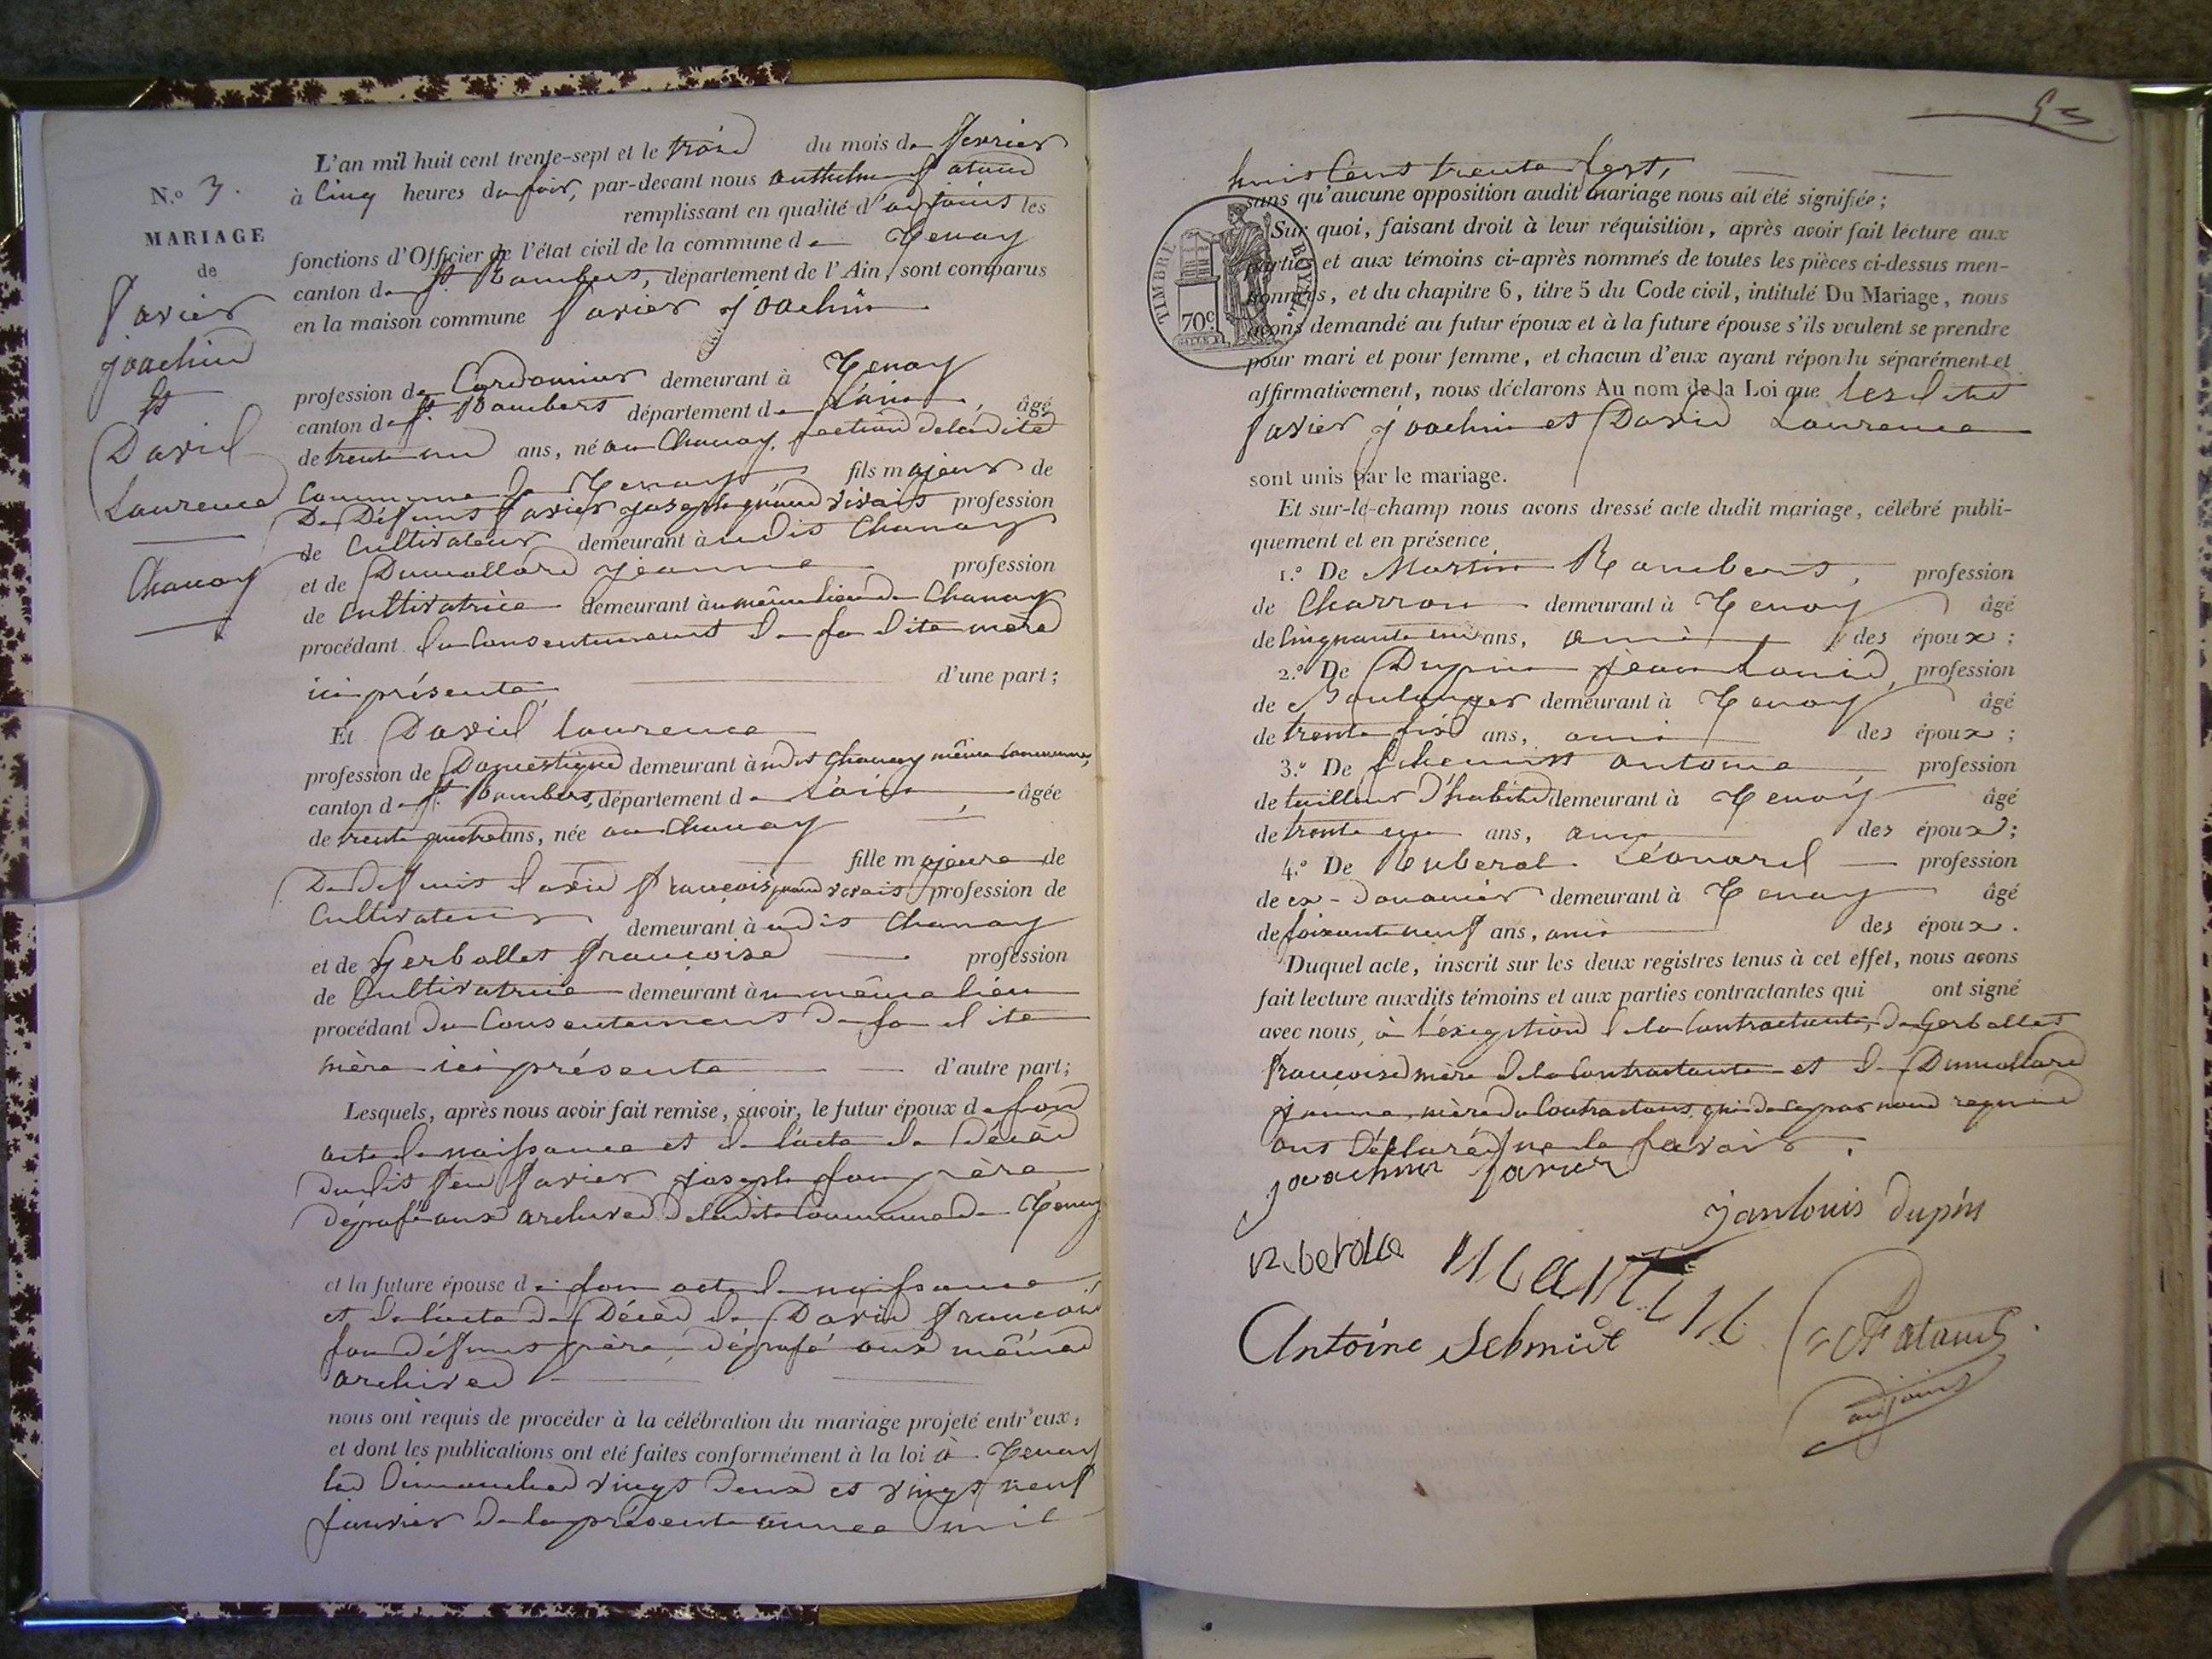 N.º 3.
MARIAGE
de
Favier
joachim
Et
David
Laurence
Chanay
L'an mil huit cent trente-sept et le trois du mois de fevrier
à cinq heures du soir, par-devant nous anthelme Patand
remplissant en qualité d'adjoint les
fonctions d'Officier de l'état civil de la commune de Tenay
canton de St. Rambert, département de l'Ain, sont comparus
en la maison commune favier joachim
profession de Cordonnier demeurant à Tenay
canton de St. Rambert département de L'ain, âgé
de trente un ans, né au Chanay, section de ladite
Commune de Tenay fils majeur de
De Défunt favier joseph quand vivait profession
de Cultivateur demeurant à udit Chanay
et de Dumollard jeanne profession
de Cultivatrice demeurant à u même lieu de Chanay
procédant du Consentement de sa dite mère
ici présente, d'une part;
Et David Laurence
profession de Domestique demeurant à udit Chanay même commune,
canton de St. Rambert, département de L'ain, âgée
de trente quatre ans, née au Chanay
fille majeure de
De Defunt david françois quand vivait profession de
Cultivateur demeurant à udit Chanay
et de Gerbollet françoise profession
de Cultivatrice demeurant à u même lieu
procédant du Consentement de sa dite
mère ici présente d'autre part;
Lesquels, après nous avoir fait remise, savoir, le futur époux de son
acte de naissance et de l'acte de Décès
dudit feu favier joseph son père
déposé aux archives de ladite Commune de Tenay
et la future épouse de son acte de naissance,
et de l'acte de Décès de David françois
son défunt père, déposé aux mêmes
archives
nous ont requis de procéder à la célébration du mariage projeté entr'eux,
et dont les publications ont été faites conformément à la loi à Tenay
les Dimanches vingt deux et vingt neuf
janvier de la présente année mil
huit Cent trente sept,
sans qu'aucune opposition audit mariage nous ait été signifiée;
TIMBRE ROYAL
70c.
Sur quoi, faisant droit à leur réquisition, après avoir fait lecture aux
parties et aux témoins ci-après nommés de toutes les pièces ci-dessus men-
tionnées, et du chapitre 6, titre 5 du Code civil, intitulé Du Mariage, nous
avons demandé au futur époux et à la future épouse s'ils veulent se prendre
pour mari et pour femme, et chacun d'eux ayant répondu séparément et
affirmativement, nous déclarons Au nom de la Loi que lesdits
favier joachim et David Laurence
sont unis par le mariage.
Et sur-le-champ nous avons dressé acte dudit mariage, célébré publi-
quement et en présence
1.º De Martin Rambert, profession
de Charron demeurant à Tenay âgé
de cinquante un ans, ami des époux;
2.º De Dupin jean Louis, profession
de Boulanger demeurant à Tenay âgé
de trente six ans, ami des époux;
3.º De antoine, profession
de tailleur d'habits demeurant à Tenay âgé
de trente ans, ami des époux;
4.º De Léonard profession
de ex-douanier demeurant à Tenay âgé
de soixante neuf ans, ami des époux.
Duquel acte, inscrit sur les deux registres tenus à cet effet, nous avons
fait lecture auxdits témoins et aux parties contractantes qui ont signé
avec nous, à l'exeption de la Contractante, de Gerbollet
françoise mère de la Contractante et de Dumollard
jeanne, mère du Contractant, qui de ce par nous requis
ont Déclaré ne le savoir.
joachim favier
janlouis dupin
Martin
Antoine Schmidt
Patand
adjoint